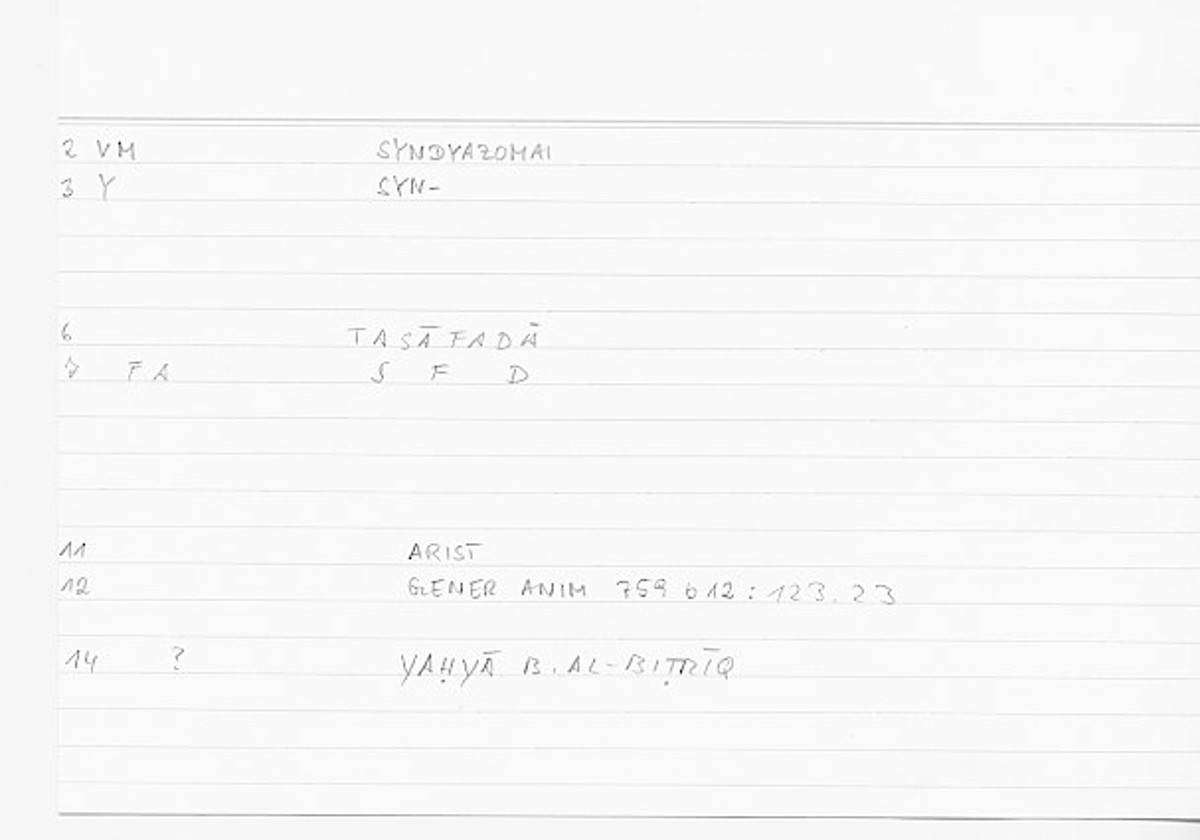 2 VM SYNDYAZOMAI
3 Y SYN-
6 TASĀFADĀ
7 FA S F D
11 ARIST
12 GENER ANIM 759 b 12 : 123.23
14 ? YAḤYĀ B. AL-BIṬRĪQ